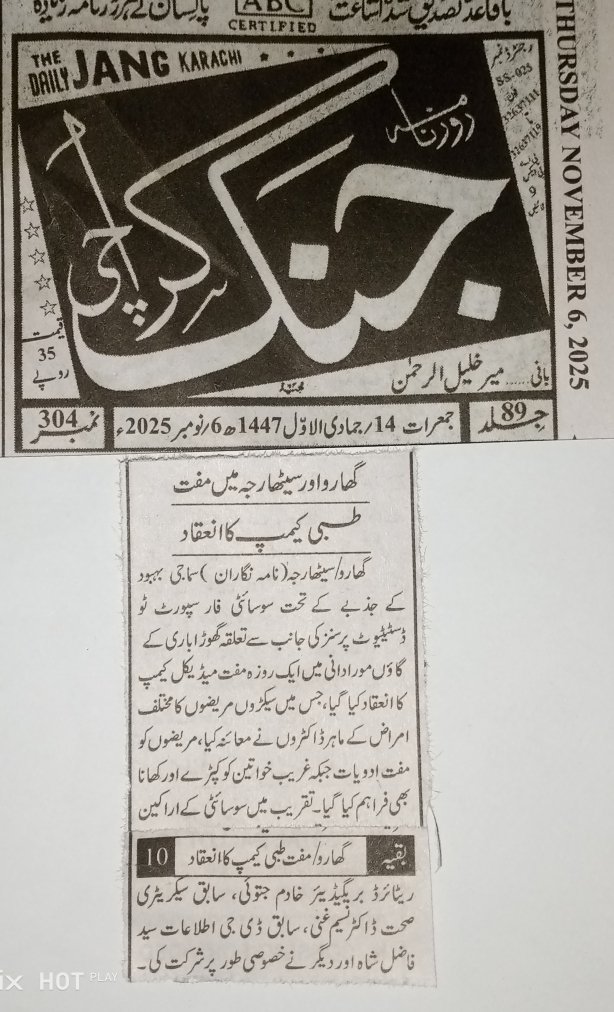 باقاعدہ تصدیق شدہ اشاعت
ABC
CERTIFIED
THE
DAILY JANG KARACHI
روزنامہ
جنگ
کراچی
رجسٹرڈ نمبر
SS-025
32637111
9
THURSDAY NOVEMBER 6, 2025
قیمت
35
روپے
بانی ...... میر خلیل الرحمٰن
جلد 89
جمعرات 14/جمادی الاوّل 1447ھ 6/نومبر 2025ء
نمبر 304
گھارو اور سیٹھارجہ میں مفت
طبی کیمپ کا انعقاد
گھارو/سیٹھارجہ (نامہ نگاران) سماجی بہبود
کے جذبے کے تحت سوسائٹی فار سپورٹ ٹو
ڈسٹیٹیوٹ پرسنز کی جانب سے تعلقہ گھوڑا باری کے
گاؤں مورادانی میں ایک روزہ مفت میڈیکل کیمپ
کا انعقاد کیا گیا، جس میں سیکڑوں مریضوں کا مختلف
امراض کے ماہر ڈاکٹروں نے معائنہ کیا، مریضوں کو
مفت ادویات جبکہ غریب خواتین کو کپڑے اور کھانا
بھی فراہم کیا گیا۔ تقریب میں سوسائٹی کے اراکین
بقیہ گھارو/مفت طبی کیمپ کا انعقاد 10
ریٹائرڈ بریگیڈیئر خادم جتوئی، سابق سیکریٹری
صحت ڈاکٹر نسیم غنی، سابق ڈی جی اطلاعات سید
فاضل شاہ اور دیگر نے خصوصی طور پر شرکت کی۔
HOT PLAY